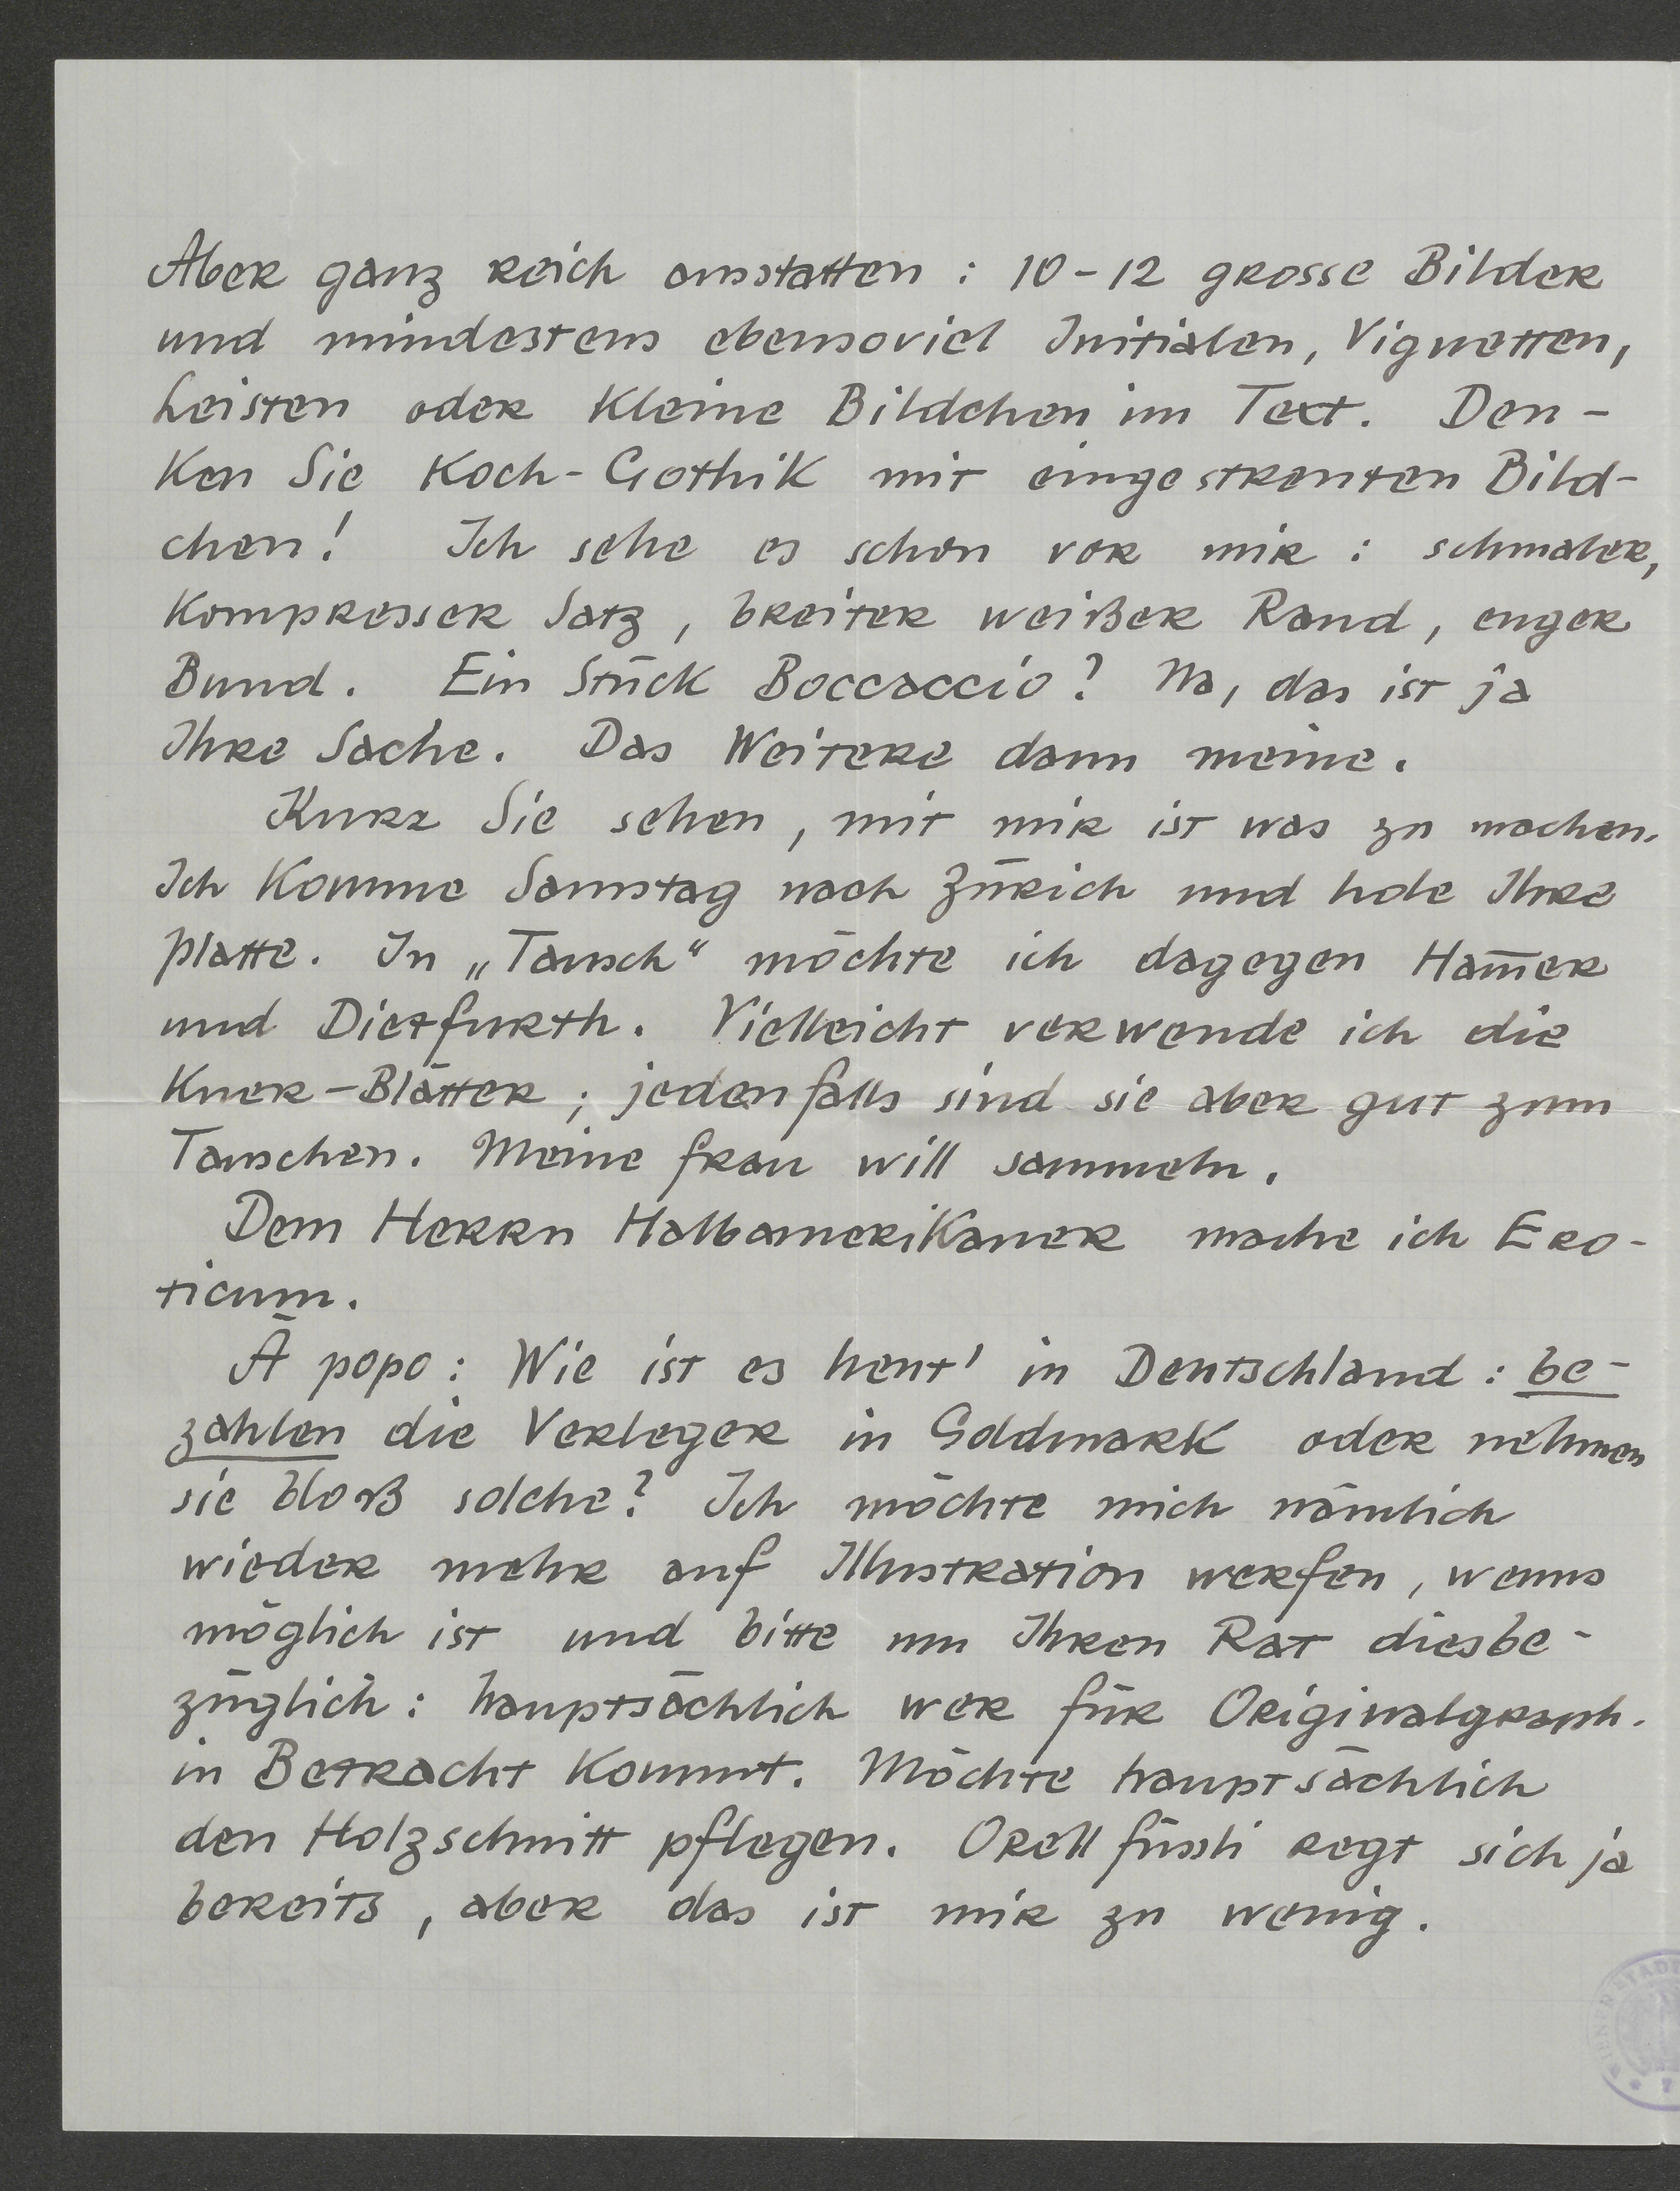 Aber ganz reich ausstatten : 10-12 grosse Bilder
und mindestens ebensoviel Initialen, Vignetten,
Leisten oder kleine Bildchen im Text. Den-
ken Sie Koch-Gothik mit eingestreuten Bild-
chen! Ich sehe es schon vor mir : schmaler,
kompresser Satz, breiter weißer Rand, enger
Bund. Ein Stück Boccaccio? Na, das ist ja
Ihre Sache. Das Weitere dann meine.
Kurz Sie sehen, mit mir ist was zu machen.
Ich komme Samstag nach Zürich und hole Ihre
Platte. In „Tausch“ möchte ich dagegen Ham̅er
und Dietfurth. Vielleicht verwende ich die
Kner-Blätter; jedenfalls sind sie aber gut zum
Tauschen. Meine Frau will sammeln.
Dem Herrn Halbamerikaner mache ich Ero-
ticum.
À popo : Wie ist es heut' in Deutschland : be-
zahlen die Verleger in Goldmark oder nehmen
sie bloß solche? Ich möchte mich nämlich
wieder mehr auf Illustration werfen, wenns
möglich ist und bitte um Ihren Rat diesbe-
züglich : hauptsächlich wer für Originalgraph.
in Betracht kommt. Möchte hauptsächlich
den Holzschnitt pflegen. Orell füssli regt sich ja
bereits, aber das ist mir zu wenig.